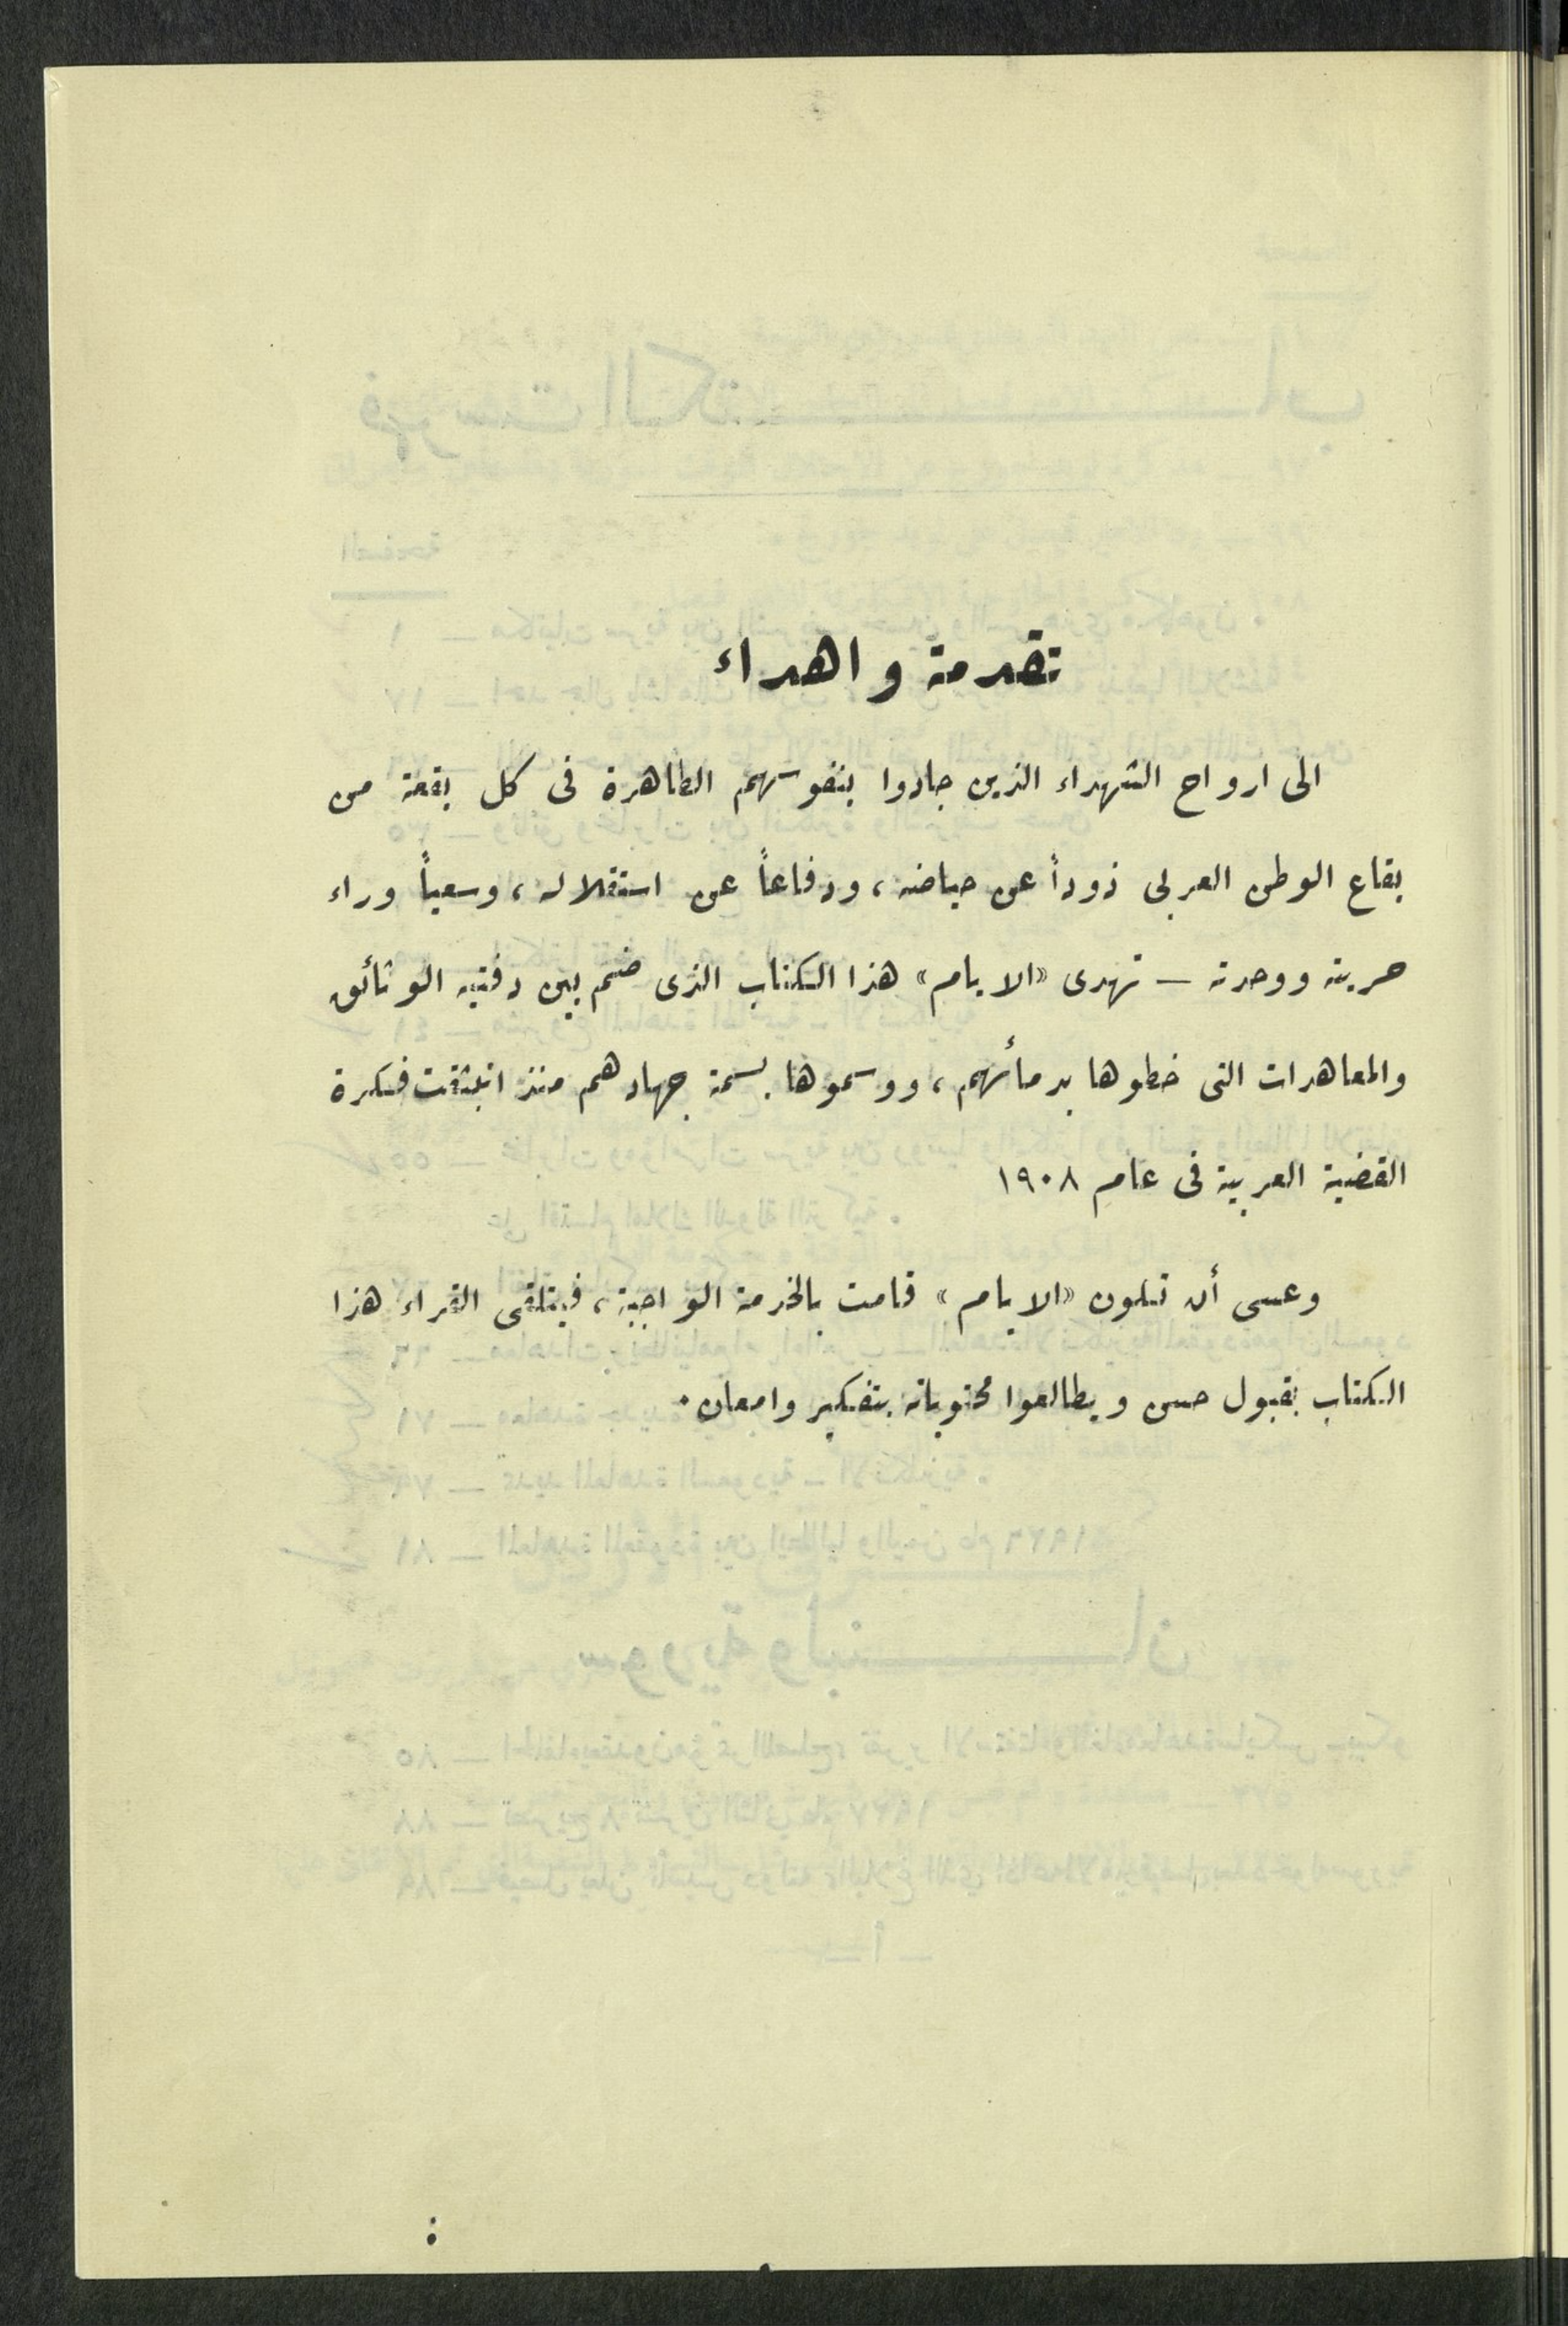 تقدمة واهداء
الى ارواح الشهداء الذين جادوا بنفوسهم الطاهرة فى كل بقعة من
بقاع الوطن العربى ذوداً عن حياضه، ودفاعاً عن استقلاله، وسعياً وراء
حريته ووحدته — تهدى «الايام» هذا الكتاب الذى ضم بين دفتيه الوثائق
والمعاهدات التى خطوها بدمأئهم، ووسموها بسمة جهادهم منذ انبثقت فكرة
القضية العربية فى عام ١٩٠٨
وعسى أن تكون «الايام» قامت بالخدمة الواجبة، فيتلقى القراء هذا
الكتاب بقبول حسن ويطالعوا محتوياته بتفكير وامعان.